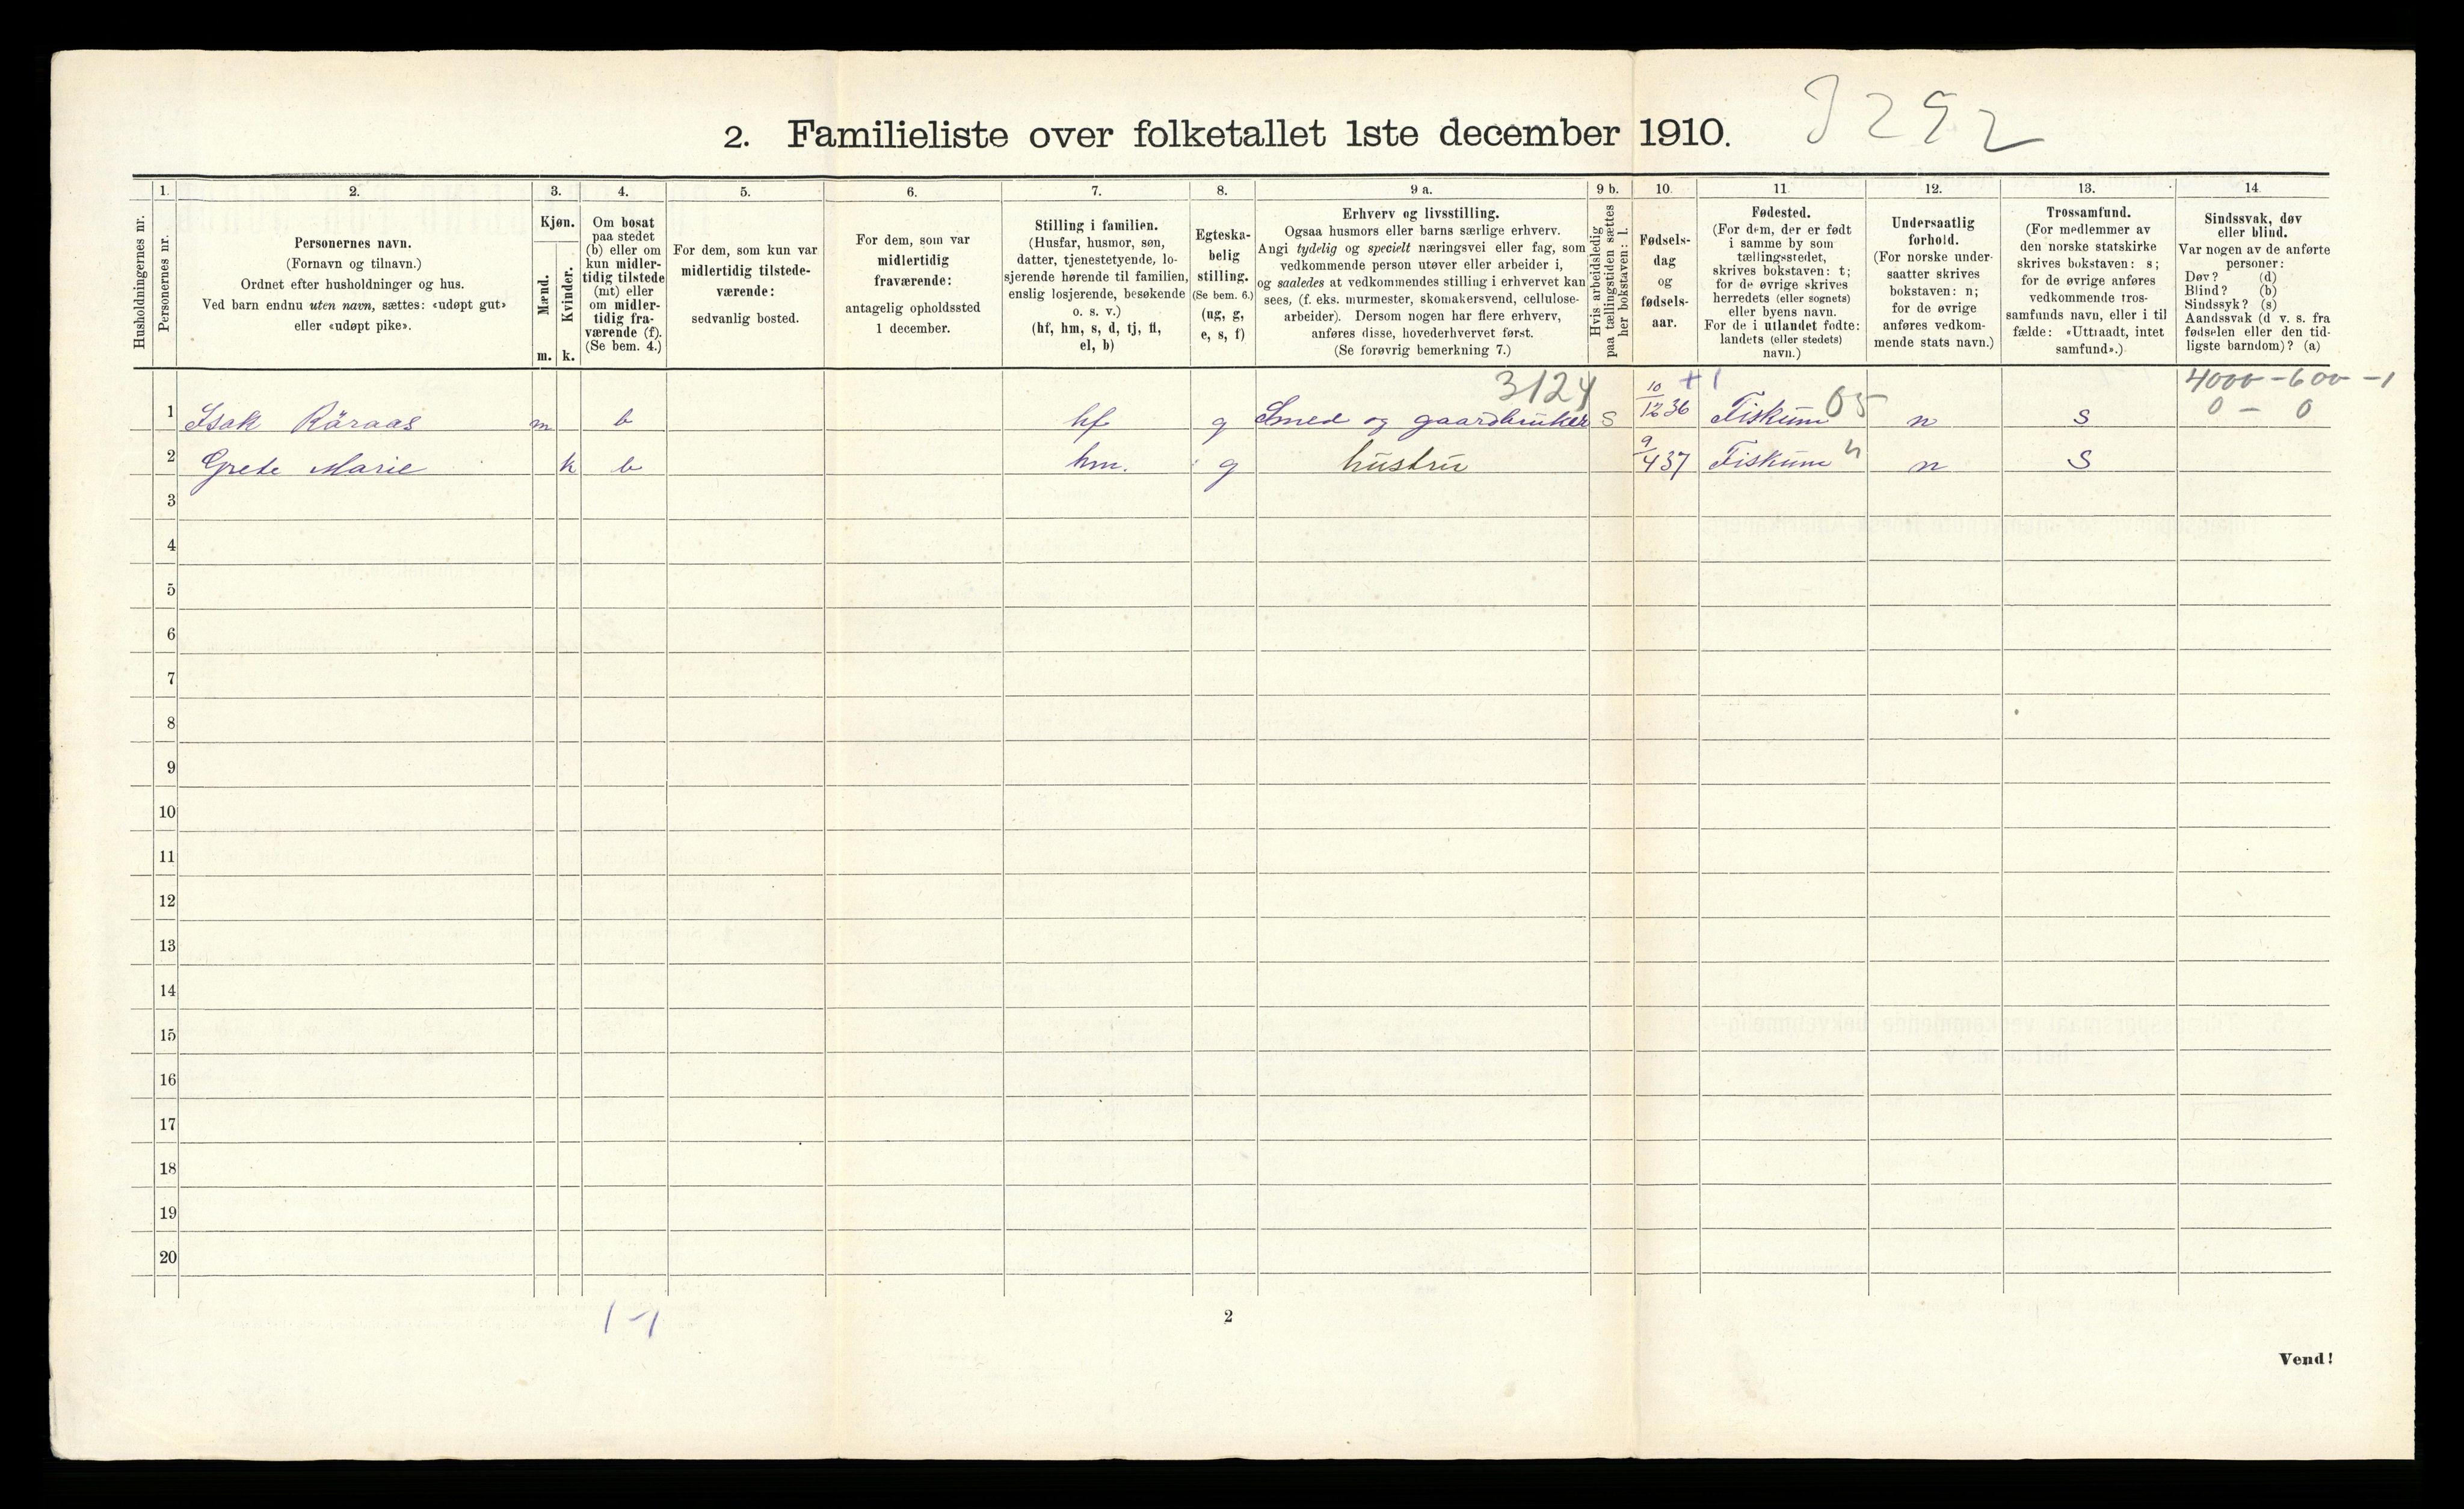 2. Familieliste over folketallet 1ste december 1910.
1. 2. 3. 4. 5. 6. 7. 8. 9 a. 9 b. 10. 11. 12. 13. 14.
Husholdningernes nr.
Personernes nr.
Personernes navn.
(Fornavn og tilnavn.)
Ordnet efter husholdninger og hus.
Ved barn endnu uten navn, sættes: «udøpt gut»
eller «udøpt pike».
Kjøn.
Mænd.
m.
Kvinder.
k.
Om bosat
paa stedet
(b) eller om
kun midler-
tidig tilstede
(mt) eller
om midler-
tidig fra-
værende (f).
(Se bem. 4.)
For dem, som kun var
midlertidig tilstede-
værende:
sedvanlig bosted.
For dem, som var
midlertidig
fraværende:
antagelig opholdssted
1 december.
Stilling i familien.
(Husfar, husmor, søn,
datter, tjenestetyende, lo-
sjerende hørende til familien,
enslig losjerende, besøkende
o. s. v.)
(hf, hm, s, d, tj, fl,
el, b)
Egteska-
belig
stilling.
(Se bem. 6.)
(ug, g,
e, s, f)
Erhverv og livsstilling.
Ogsaa husmors eller barns særlige erhverv.
Angi tydelig og specielt næringsvei eller fag, som
vedkommende person utøver eller arbeider i,
og saaledes at vedkommendes stilling i erhvervet kan
sees, (f. eks. murmester, skomakersvend, cellulose-
arbeider). Dersom nogen har flere erhverv,
anføres disse, hovederhvervet først.
(Se forøvrig bemerkning 7.)
Hvis arbeidsledig
paa tællingstiden sættes
her bokstaven: l.
Fødsels-
dag
og
fødsels-
aar.
Fødested.
(For dem, der er født
i samme by som
tællingsstedet,
skrives bokstaven: t;
for de øvrige skrives
herredets (eller sognets)
eller byens navn.
For de i utlandet fødte:
landets (eller stedets)
navn.)
Undersaatlig
forhold.
(For norske under-
saatter skrives
bokstaven: n;
for de øvrige
anføres vedkom-
mende stats navn.)
Trossamfund.
(For medlemmer av
den norske statskirke
skrives bokstaven: s;
for de øvrige anføres
vedkommende tros-
samfunds navn, eller i til
fælde: «Uttraadt, intet
samfund».)
Sindssvak, døv
eller blind.
Var nogen av de anførte
personer:
Døv? (d)
Blind? (b)
Sindssyk? (s)
Aandssvak (d v. s. fra
fødselen eller den tid-
ligste barndom)? (a)
3124 +1 4000 - 600 - 1
1 Isak Råraas m b hf g Smed og gaardbruker S 10/12 36 Fiskum 05 n s 0 - 0
2 Grete Marie k b hm. g hustru 9/4 37 Fiskum n s
3
4
5
6
7
8
9
10
11
12
13
14
15
16
17
18
19
20
1-1
2
Vend!